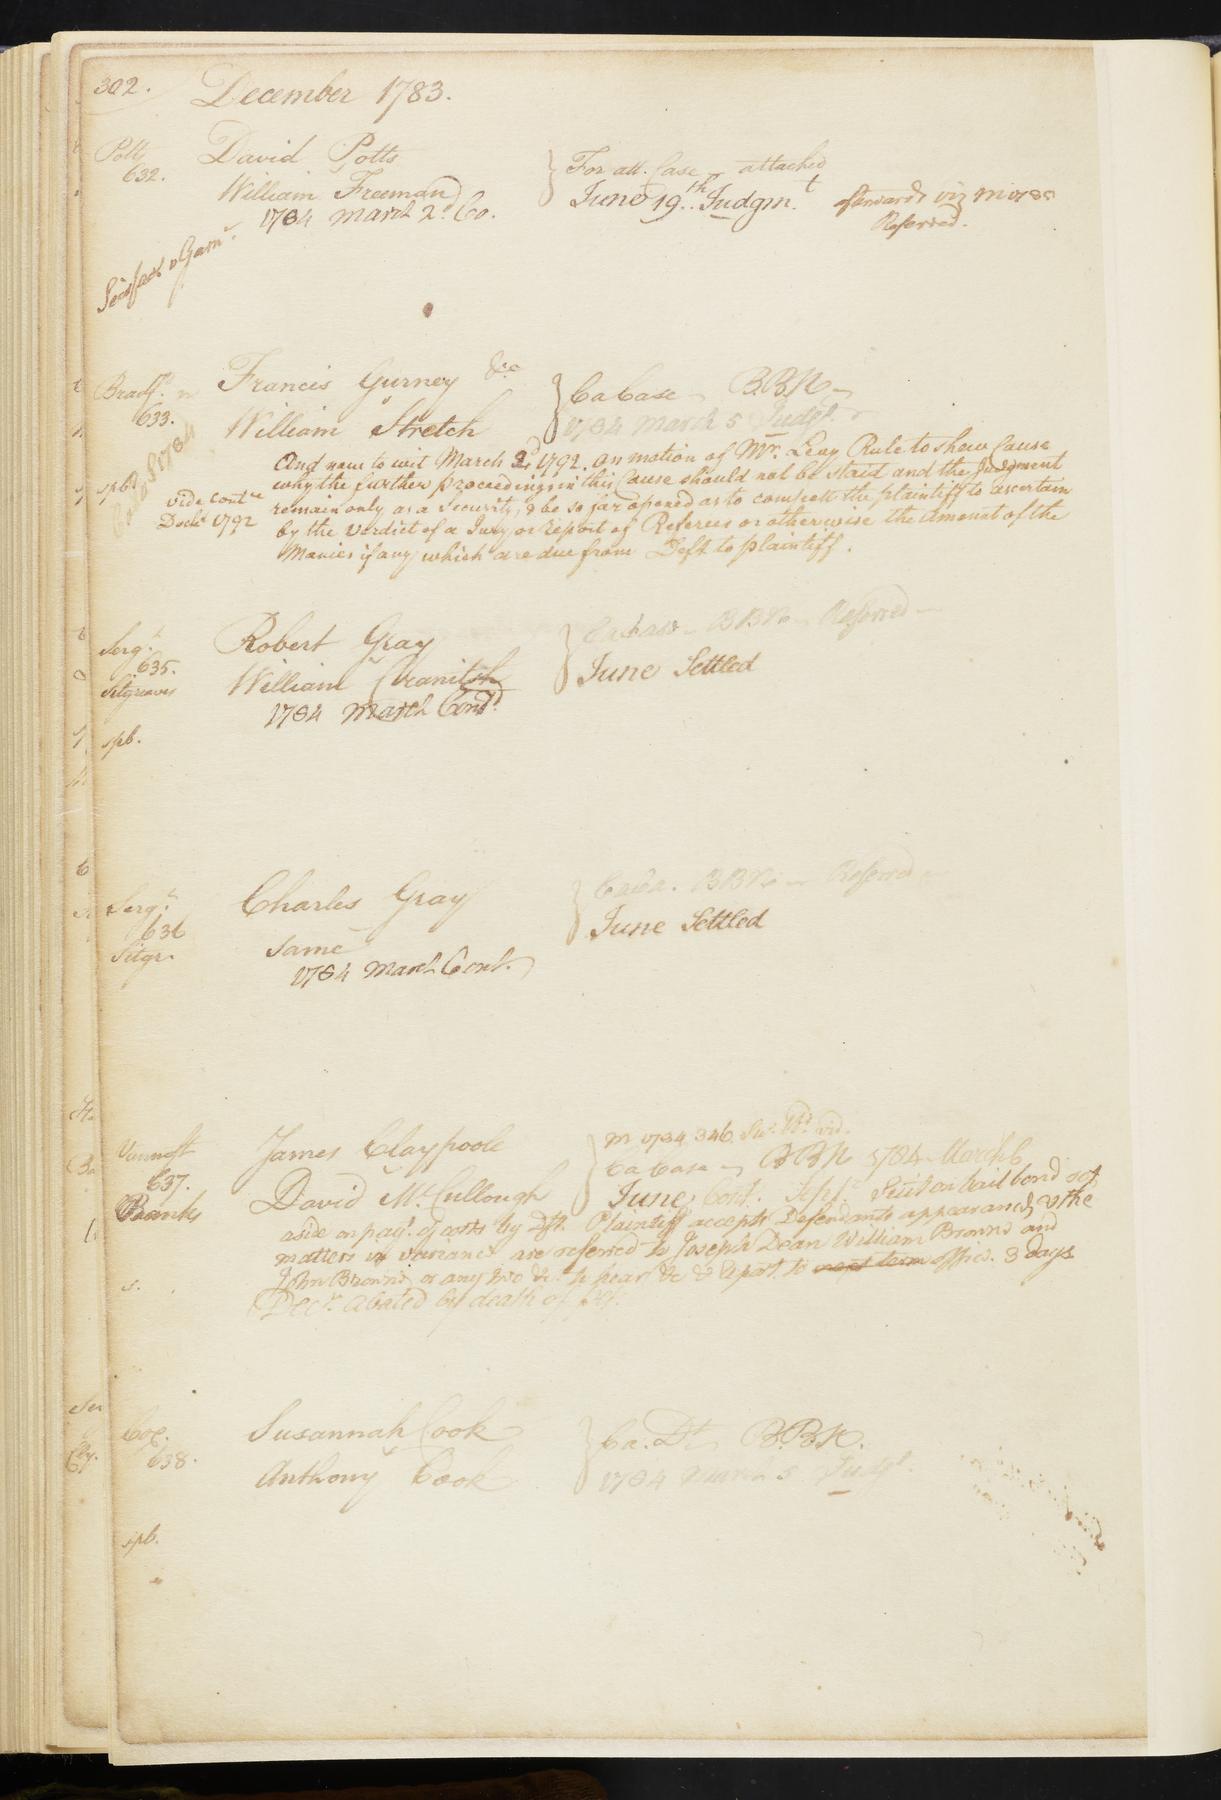 302. December 1783.
Potts David Potts
632. William Freeman
1784 March 2d Co.
For att. Case attached
June 19th Judgmt afterwards viz
Referred.
Sci fac v Garn
Bradfd. Francis Gurney &c
633. William Stretch
Ca Case BBN
1784 March 5 Judgt.
Ca Sa 1784
And now to wit March 2d 1792. on motion of Mr. Levy Rule to shew Cause
why the further proceedings in this Cause should not be staid and the Judgment
remain only as a Security, & be so far opened as to compell the plaintiff to ascertain
by the Verdict of a Jury or Report of Referees or otherwise the amount of the
Monies if any which are due from Deft to plaintiff.
spb
vide Contce
Dockt 1792
Sergt. Robert Gray
635. William
Sitgreaves 1784 March Contd.
Ca Case BBN Referred
June Settled
spb.
Sergt. Charles Gray
636 Same
Sitgr. 1784 March Cont.
Ca Ca. BBN Referred
June Settled
Vannost James Claypoole
637. David McCullough
Bankes
m 1784 346
Ca Case BBN 1784 March 6
June Cont. Sept. Suit on bail bond set
aside on payt. of costs by Dft. Plaintiff accepts Defendants appearance, & the
matters in variance are referred to Joseph Dean William Brown and
John Brown, or any two &c. to hear &c & report to next term office. 3 days
Decr. abated by death of
s.
Coxe. Susannah Cook
638. Anthony Cook
Ca. Dt. BBN.
1784 March 5 Judgt.
spb.